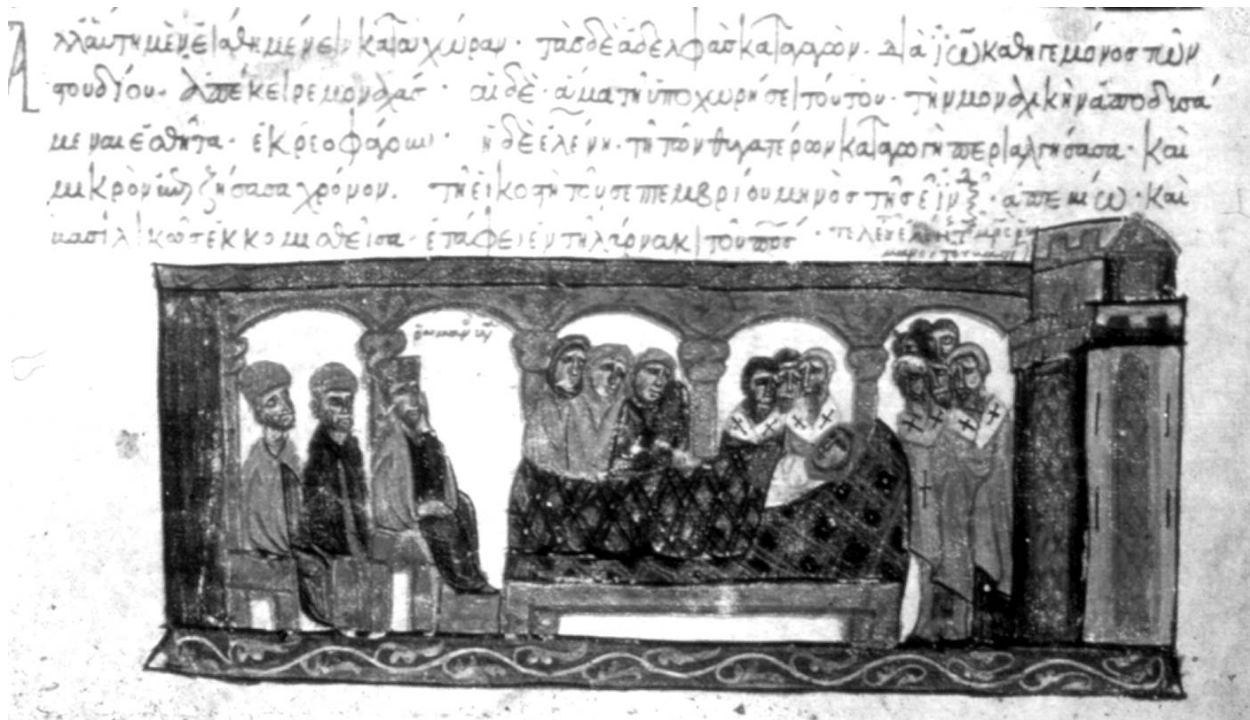 Ἀλλ' αὐτὴ μὲν εἰάθη μένειν κατὰ χώραν· τὰς δὲ ἀδελφὰς καταγαγὼν· διὰ ἰω καθηγεμόνος τῶν
στουδίου· ἀπέκειρε μοναχάς· αἱ δὲ ἅμα τῆ ὑποχωρήσει τούτου· τὴν μοναχικὴν ἀποδυσά
μεναι ἐσθῆτα· ἐκρεοφάγουν· ἡ δὲ ἑλένη· τῆ τῶν θυγατέρων καταγωγῆ περιαλγήσασα· καὶ
μικρὸν ἐπιζήσασα χρόνον. τῆ εἰκοστῆ τοῦ σεπτεμβρίου μηνὸς τῆς ἰνδ · ἀπεβίω· καὶ
βασιλικῶς ἐκκομισθεῖσα· ἐτάφει ἐν τῆ λάρνακι τοῦ πρς·